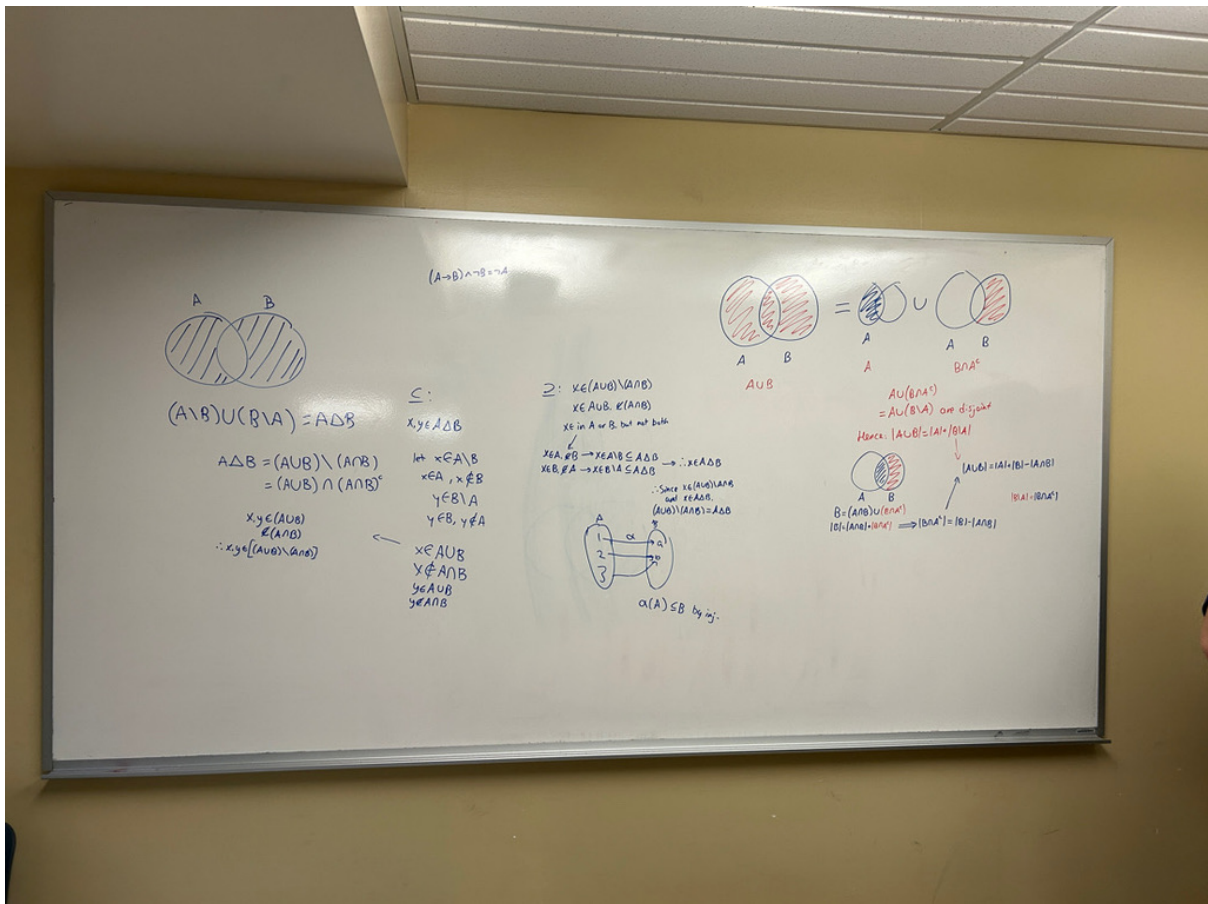 (A→B)∧¬B=¬A
A B
(A\B)∪(B\A)=A∆B
A∆B=(A∪B)\(A∩B)
=(A∪B)∩(A∩B)ᶜ
x,y∈(A∪B)
∉(A∩B)
∴x,y∈[(A∪B)\(A∩B)]
⊆:
x,y∈A∆B
let x∈A\B
x∈A, x∉B
y∈B\A
y∈B, y∉A
x∈A∪B
x∉A∩B
y∈A∪B
y∉A∩B
⊇: x∈(A∪B)\(A∩B)
x∈A∪B, ∉(A∩B)
x∈ in A or B, but not both
x∈A,∉B→x∈A\B⊆A∆B
x∈B,∉A→x∈B\A⊆A∆B →∴x∈A∆B
∴Since x∈(A∪B)\(A∩B)
and x∈A∆B,
(A∪B)\(A∩B)=A∆B
A
1 α a
2
3
α(A)⊆B by inj.
= ∪
A B A A B
A∪B A B∩Aᶜ
A∪(B∩Aᶜ)
=A∪(B\A) are disjoint
Hence: |A∪B|=|A|+|B\A|
A B
|A∪B|=|A|+|B|-|A∩B|
|B\A|=|B∩Aᶜ|
B=(A∩B)∪(B∩Aᶜ)
|B|=|A∩B|+|B∩Aᶜ| ⟹|B∩Aᶜ|=|B|-|A∩B|